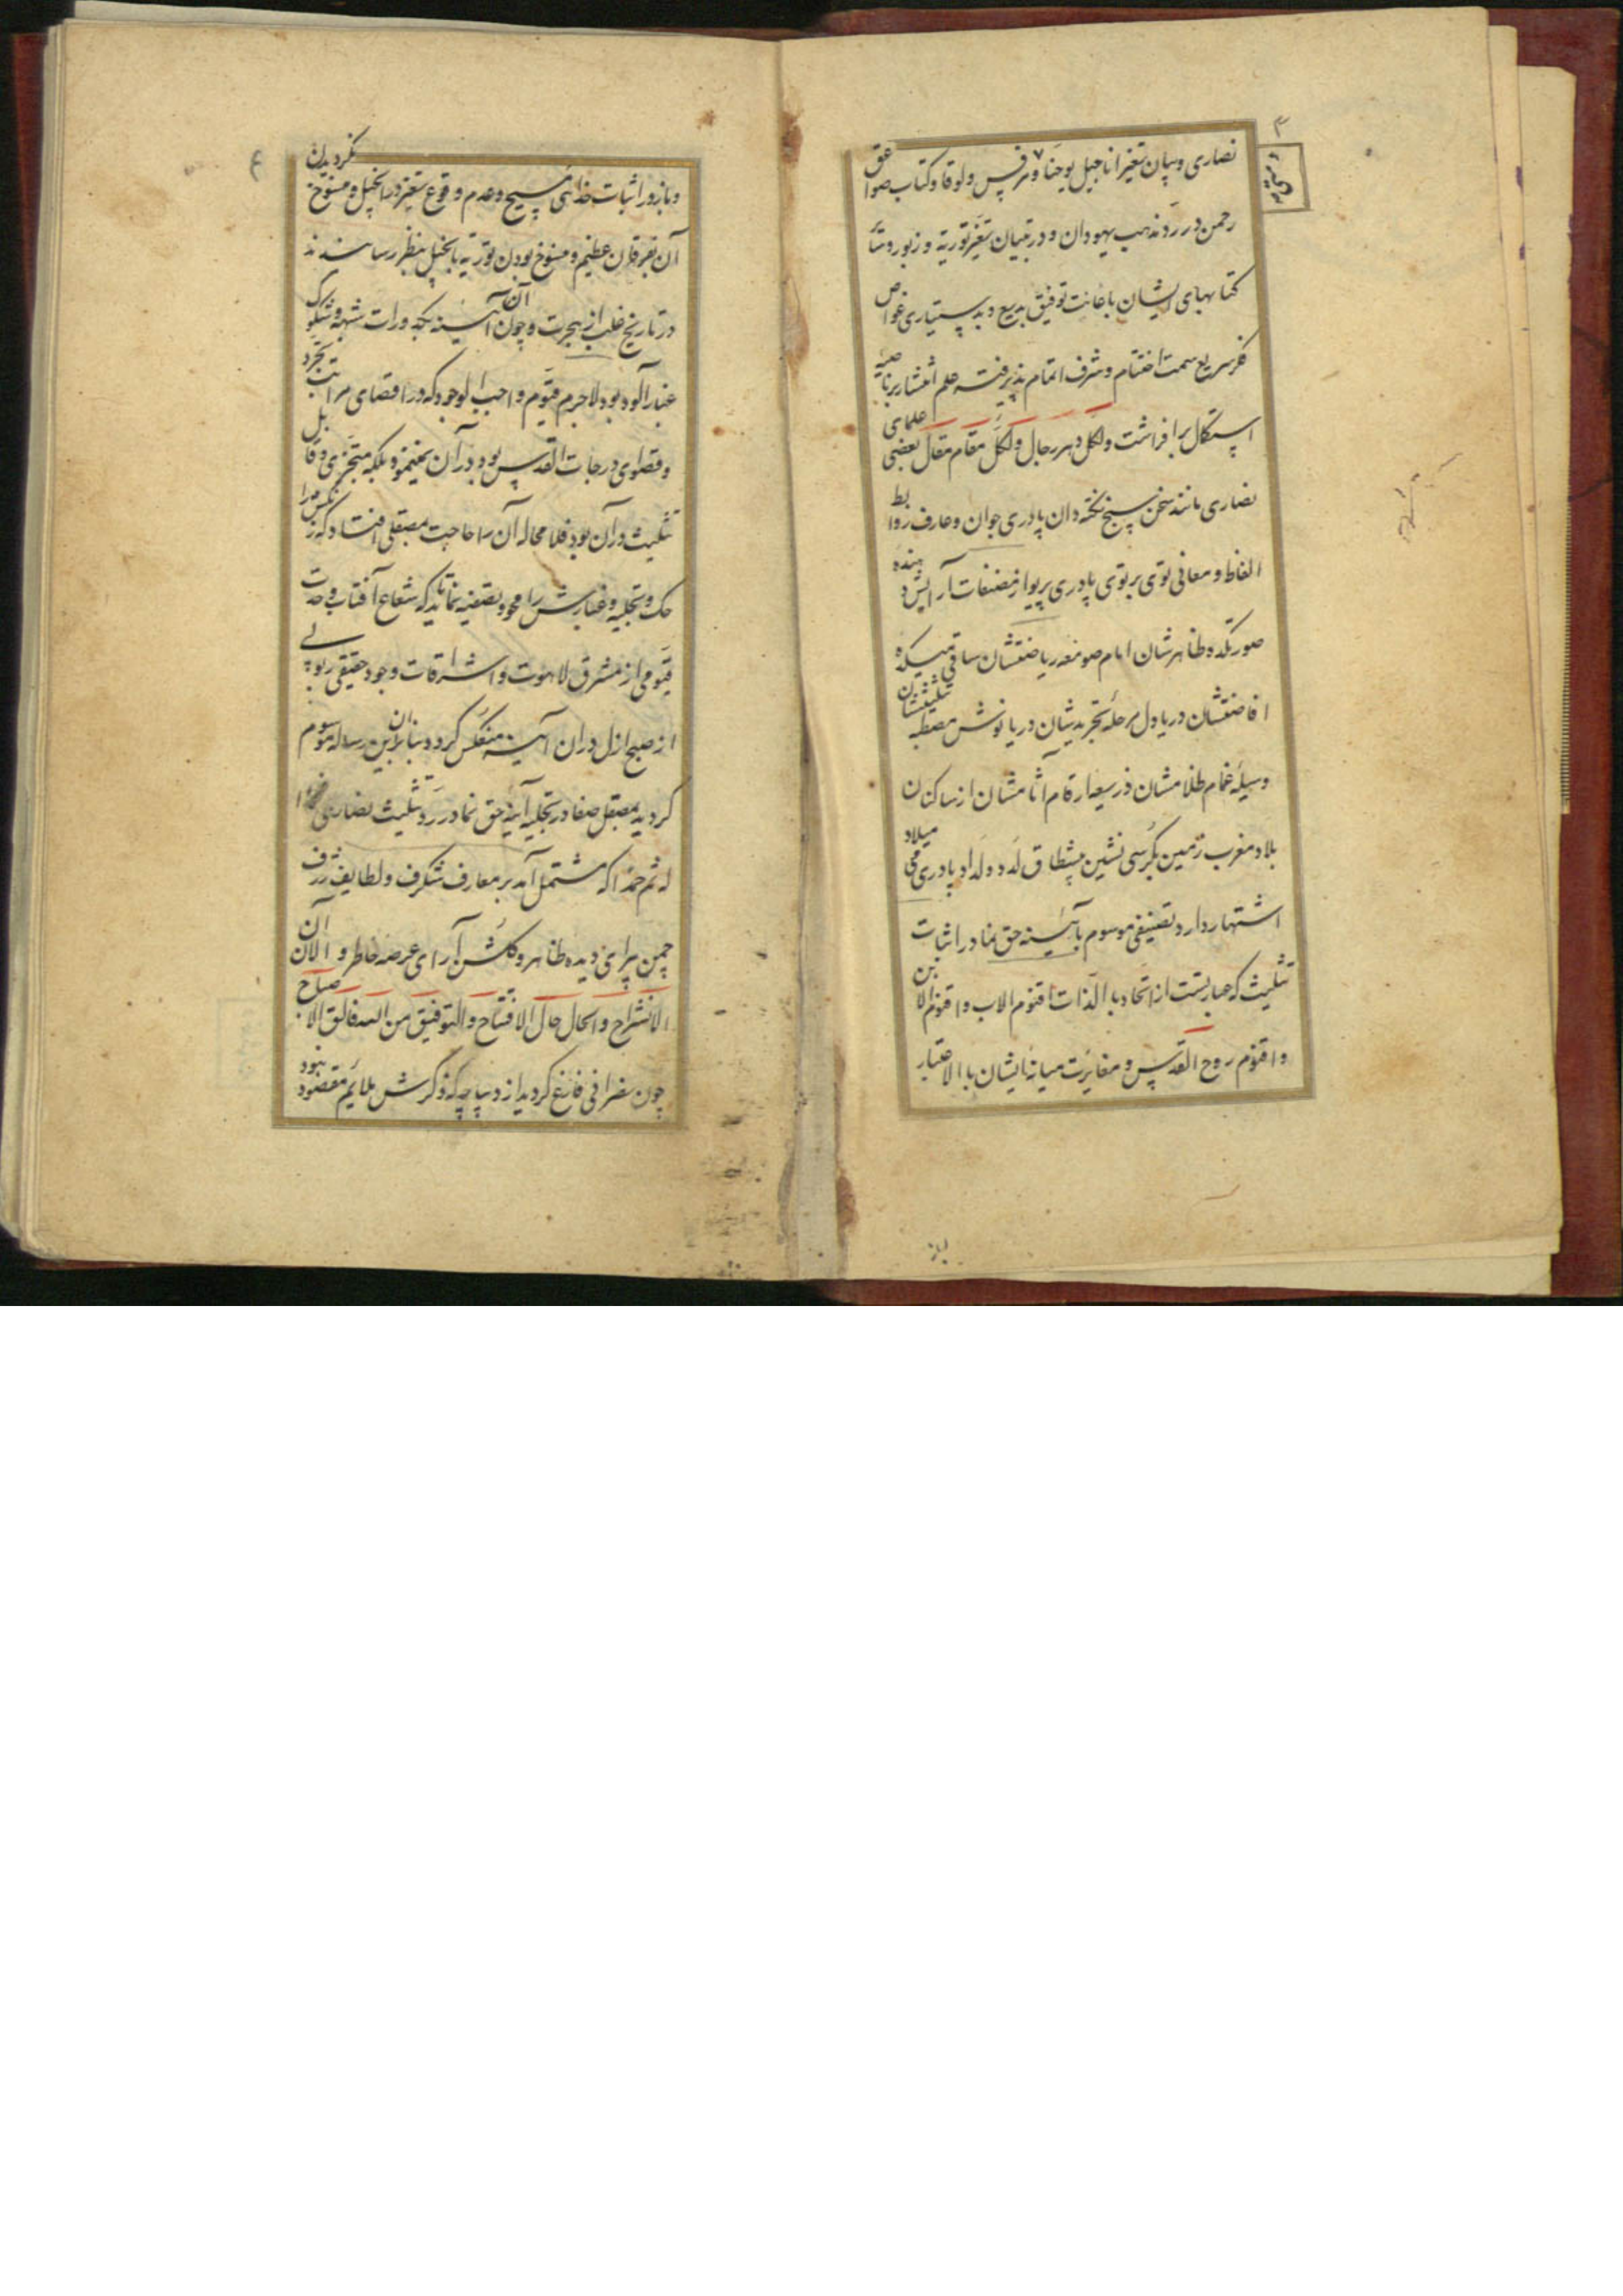 نصاری و بیان تغیر اناجیل یوحنا و مرقس و لوقا و کتاب صواعق
رحمن در رد مذهب یهودان و در تبیان تغیر توریة و زبور و سایر
کتابهای ایشان باعانت توفیق بدیع و بدستیاری غواص
فکر سریع سمت اختتام و شرف اتمام پذیرفته علم انتشار بر ناصیه
استکمال برافراشت و لکل دهر رجال و لکل مقام مقال بعضی علمای
نصاری مانند سخن سنج نکته دان پادری جوان و عارف روابط
الفاظ و معانی توی برتوی پادری پریوا از مصنفات آرایش دهنده
صورتکده ظاهرشان امام صومعه ریاضتشان ساقی میکده
افاضتشان دریادل مرحله تجریدیشان دریانوش مصطبه تثلیثیشان
وسیله غمام ظلامشان ذریعه ارقام آثامشان از ساکنان
بلاد مغرب زمین بکرسی نشین پیشطاق لدد و لداد پادری میلاد
اشتهار دارد تصنیفی موسوم بآیینه حق نما در اثبات
تثلیث که عبارتست از اتحاد بالذات اقنوم الاب و اقنوم الابن
و اقنوم روح القدس و مغایرت میانه ایشان بالاعتبار
و باز در اثبات خدائی مسیح و عدم وقوع تغیر در انجیل و منسوخ نگردیدن
آن بفرقان عظیم و منسوخ بودن توریة بانجیل بنظر رسانیدند
در تاریخ غلب از هجرت و چون آن آیینه بکدورات شبهه و شکوک
غبارآلود بود لاجرم قیوم واجب الوجود که در اقصای مراتب تجرد
و قصوای درجات القدس بود در آن نمینمود بلکه متجزی و قابل
تثلیث در آن بود فلامحاله آن را حاجت بمصقلی افتاد که زنگش را
حک و تجلیه و غبارش را محو و تصفیه نماید تا که شعاع آفتاب وحدت
قیومی از مشرق لاهوت و اشراقات وجود حقیقی ربوبی
از صبح ازل در آن آیینه منعکس گردد بنابران این رساله موسوم
گردید بمصقل صفا در تجلیه آینه حق نما در رد تثلیث نصاری
له ثم حمدا که مشتمل آمد بر معارف شگرف و لطایف ژرف
چمن پیرای دیده ظاهر و گلشن آرای عرصه خاطر و الآن آن
الانشراح و الحال حال الافتتاح و التوفیق من الله فالق الاصباح
چون سفرا فی فارغ گردید از دیباچه که ذکرش ملائم مقصود نبود